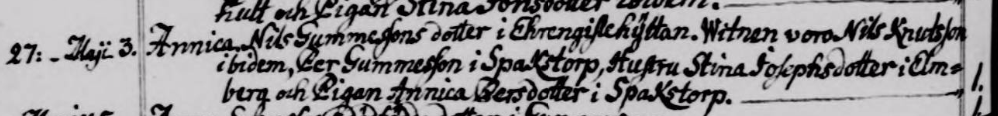 Hult och Pigan Stina Jonsdotter ibidem.
27: - Maji 3. Annica, Nils Gummessons dotter i Ehrengislehyttan. Witnen voro Nils Knutsson
ibidem, Per Gummesson i Spakstorp, Hustru Stina Josephsdotter i Elm=
berg och Pigan Annica Persdotter i Spakstorp. 1.